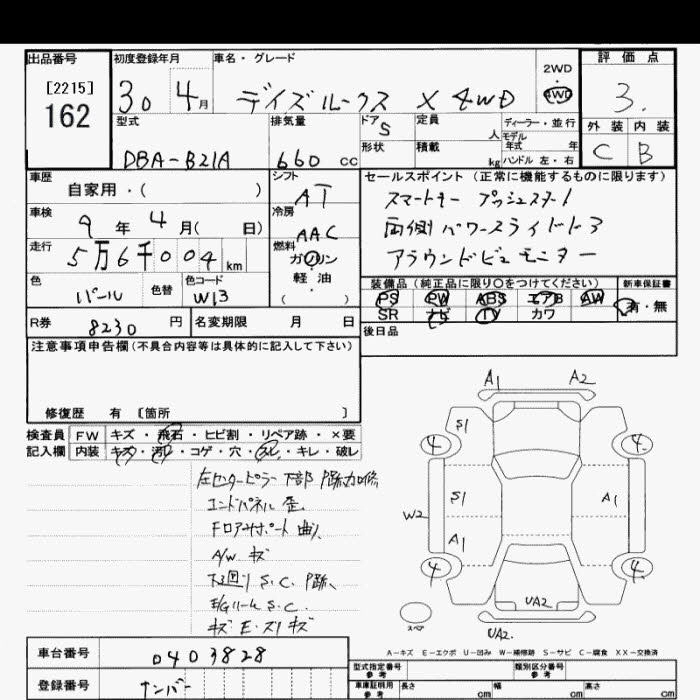 出品番号
[2215]
162
初度登録年月
30 4月
車名・グレード
デイズルークス X 4WD
2WD
・
4WD
評価点
3.
外装 内装
C B
型式
DBA-B21A
排気量
660 cc
ドア 5
形状
定員 人
積載 kg
ディーラー・並行
モデル
年式 年
ハンドル 左・右
車歴
自家用・( )
シフト
AT
セールスポイント (正常に機能するものに限ります)
スマートキー プッシュスタート
両側パワースライドドア
アラウンドビューモニター
車検
9年 4月( 日)
冷房
AAC
走行
5万6千004 km
燃料
ガソリン
軽・油
( )
色
パール
色替
色コード
W13
装備品 (純正品に限り○をつけてください)
新車保証書
PS PW ABS エアB AW
SR ナビ TV カワ
有・無
R券
8230 円
名変期限 月 日
後日品
注意事項申告欄 (不具合内容等は具体的に記入して下さい)
修復歴 有 [箇所 ]
検査員
記入欄
FW キズ・飛石・ヒビ割・リペア跡・×要
内装 キズ・汚れ・コゲ・穴・スレ・キレ・破レ
左センターピラー下部
エンドパネル 歪
Fロアサポート 曲り
A/W キズ
下廻り S.C.
S.C.
A1 A2
S1
4 4
S1 A1
W2
A1
4 4
UA2
スペア
UA2.
A-キズ E-エクボ U-凹み W-補修跡 S-サビ C-腐食 XX-交換済
車台番号
0403828
登録番号
ナンバー
型式指定番号
参考
類別区分番号
参考
車庫証明用
参考
長さ cm 幅 cm 高さ cm